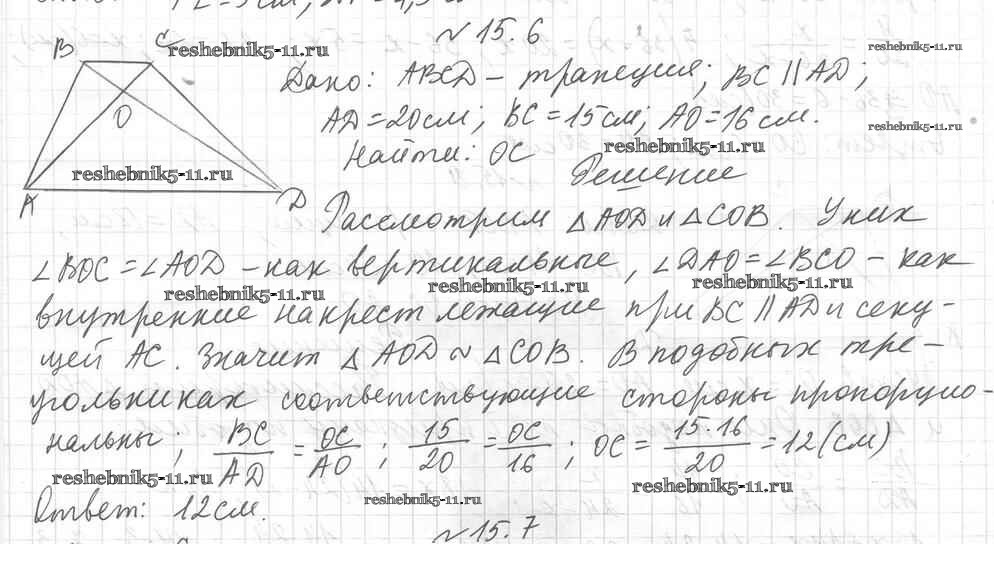 № 15.6
B C
Дано: ABCD – трапеция; BC || AD;
O
AD = 20 см; BC = 15 см; AO = 16 см.
Найти: OC
A D
Решение
Рассмотрим △ AOD и △ COB. У них
∠BOC = ∠AOD – как вертикальные, ∠DAO = ∠BCO – как
внутренние накрест лежащие при BC || AD и секу-
щей AC. Значит △ AOD ~ △ COB. В подобных тре-
угольниках соответствующие стороны пропорцио-
нальны; BC/AD = OC/AO; 15/20 = OC/16; OC = 15·16/20 = 12 (см)
Ответ: 12 см.
№ 15.7
reshebnik5-11.ru
reshebnik5-11.ru
reshebnik5-11.ru
reshebnik5-11.ru
reshebnik5-11.ru
reshebnik5-11.ru
reshebnik5-11.ru
reshebnik5-11.ru
reshebnik5-11.ru
reshebnik5-11.ru
reshebnik5-11.ru